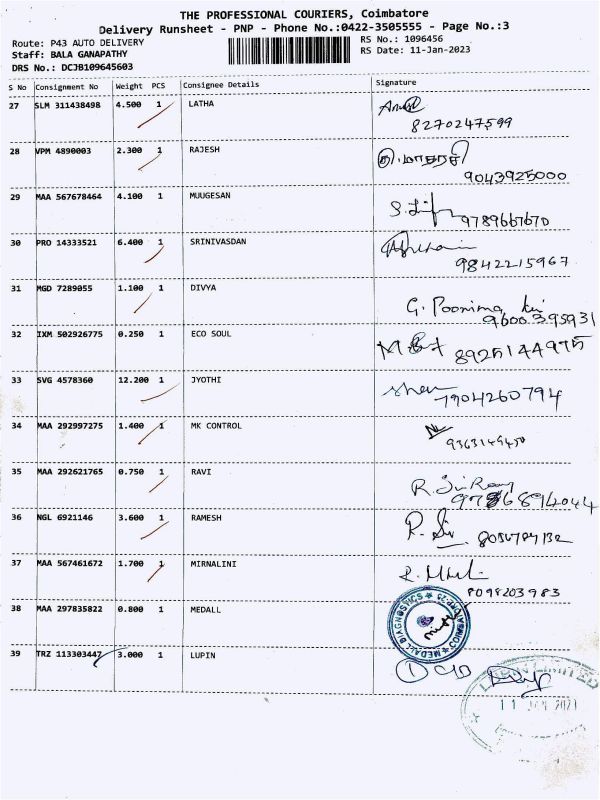 THE PROFESSIONAL COURIERS, Coimbatore
Delivery Runsheet - PNP - Phone No.:0422-3505555 - Page No.:3
Route: P43 AUTO DELIVERY
RS No.: 1096456
Staff: BALA GANAPATHY
RS Date: 11-Jan-2023
DRS No.: DCJB109645603
S No Consignment No Weight PCS Consignee Details Signature
27 SLM 311438498 4.500 1 LATHA
8270247599
28 VPM 4890003 2.300 1 RAJESH
9043925000
29 MAA 567678464 4.100 1 MUUGESAN
9789667670
30 PRO 14333521 6.400 1 SRINIVASDAN
9842215967
31 MGD 7289055 1.100 1 DIVYA
G. Poonima
9600395931
32 IXM 502926775 0.250 1 ECO SOUL
8925144975
33 SVG 4578360 12.200 1 JYOTHI
7904260794
34 MAA 292997275 1.400 1 MK CONTROL
9363149450
35 MAA 292621765 0.750 1 RAVI
36 NGL 6921146 3.600 1 RAMESH
37 MAA 567461672 1.700 1 MIRNALINI
8098203983
38 MAA 297835822 0.800 1 MEDALL
MEDALL DIAGNOSTICS
39 TRZ 113303447 3.000 1 LUPIN
LUPIN LIMITED